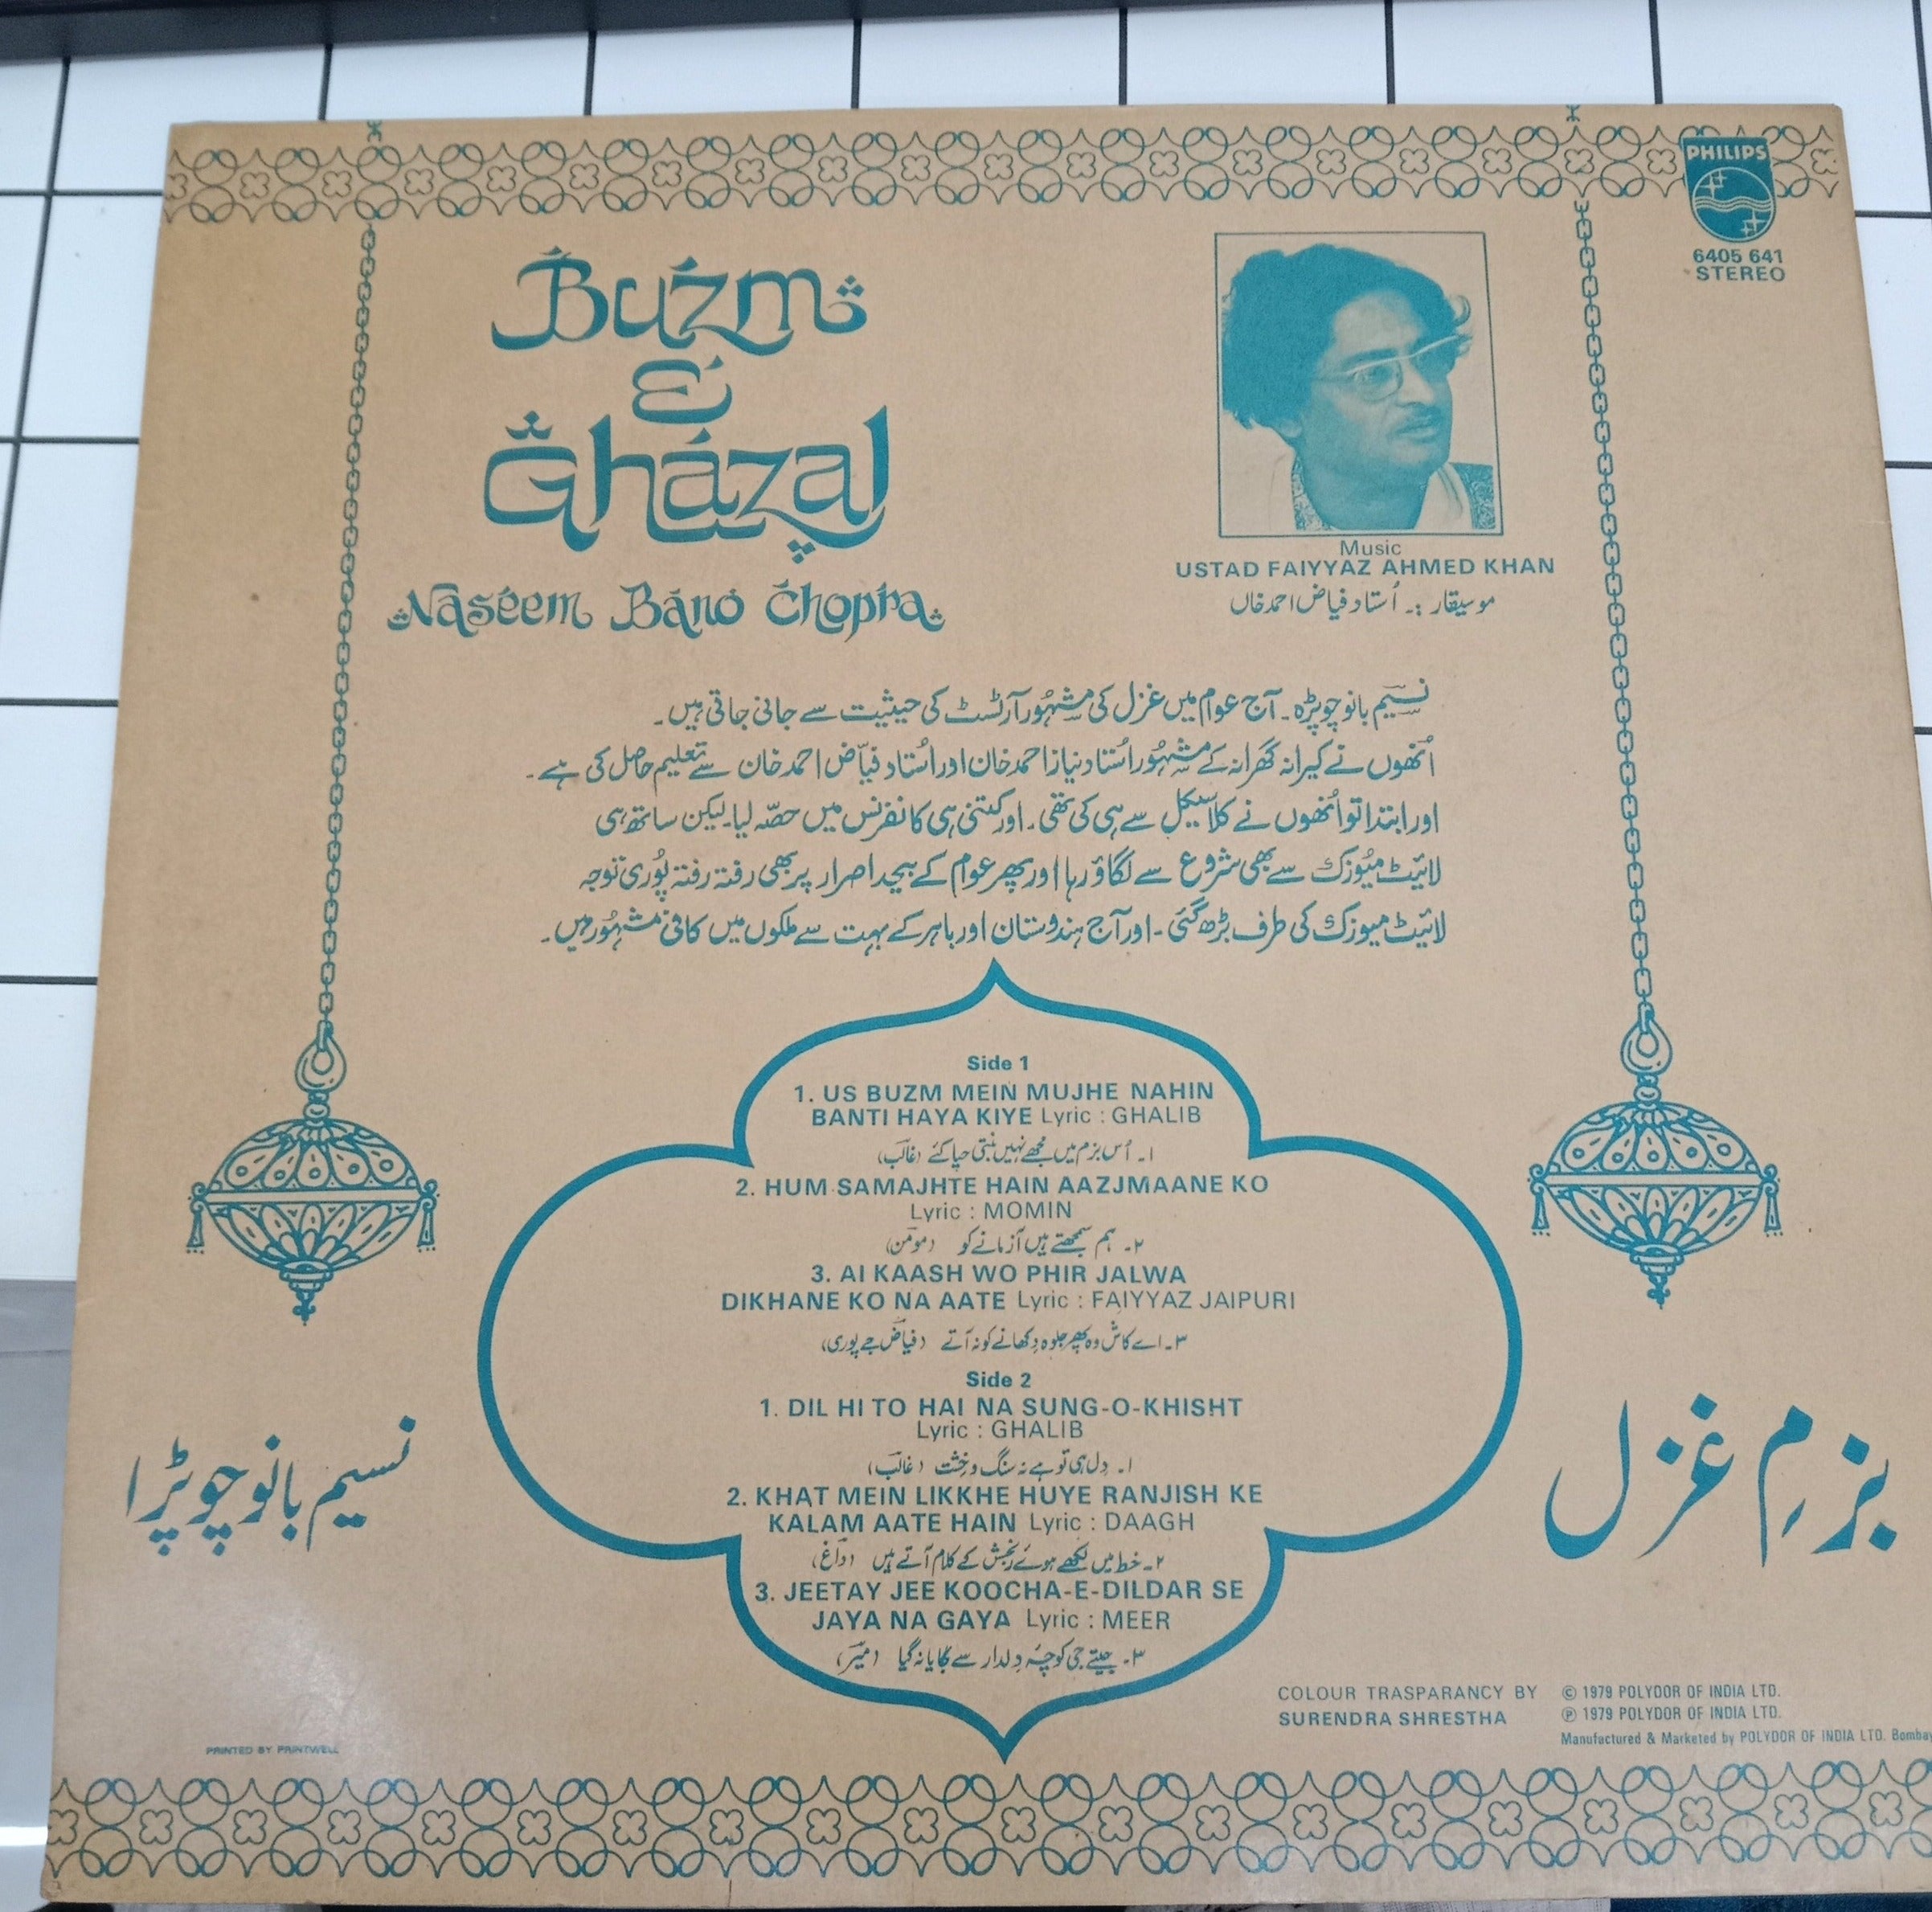 PHILIPS
6405 641
STEREO
Buzm
E
Ghazal
Naseem Bano Chopra
Music
USTAD FAIYYAZ AHMED KHAN
موسیقار :۔ اُستاد فیاض احمد خاں
نسیم بانو چوپڑہ۔ آج عوام میں غزل کی مشہُور آرٹسٹ کی حیثیت سے جانی جاتی ہیں۔
اُنھوں نے کیرانہ گھرانہ کے مشہُور اُستاد نیاز احمد خان اور اُستاد فیاّض احمد خان سے تعلیم حاصل کی ہے۔
اور ابتدا تو اُنھوں نے کلاسیکل سے ہی کی تھی۔ اور کتنی ہی کانفرنس میں حصّہ لیا۔ لیکن ساتھ ہی
لائیٹ میُوزک سے بھی شروع سے لگاؤ رہا اور پھر عوام کے بیحد اصرار پر بھی رفتہ رفتہ پُوری توجہ
لائیٹ میوزک کی طرف بڑھ گئی۔ اور آج ہندوستان اور باہر کے بہت سے ملکوں میں کافی مشہُور ہیں۔
Side 1
1. US BUZM MEIN MUJHE NAHIN
BANTI HAYA KIYE Lyric : GHALIB
۱۔ اُس بزم میں مجھے نہیں بنتی حیا کئے (غالب)
2. HUM SAMAJHTE HAIN AAZJMAANE KO
Lyric : MOMIN
۲۔ ہم سمجھتے ہیں آزمانے کو (مومن)
3. AI KAASH WO PHIR JALWA
DIKHANE KO NA AATE Lyric : FAIYYAZ JAIPURI
۳۔ اے کاش وہ پھر جلوہ دِکھانے کو نہ آتے (فیاض جے پوری)
Side 2
1. DIL HI TO HAI NA SUNG-O-KHISHT
Lyric : GHALIB
۱۔ دِل ہی تو ہے نہ سنگ و خِشت (غالب)
2. KHAT MEIN LIKKHE HUYE RANJISH KE
KALAM AATE HAIN Lyric : DAAGH
۲۔ خط میں لکھے ہوئے رنجش کے کلام آتے ہیں (داغ)
3. JEETAY JEE KOOCHA-E-DILDAR SE
JAYA NA GAYA Lyric : MEER
۳۔ جیتے جی کوچۂ دِلدار سے جایا نہ گیا (میر)
نسیم بانو چوپڑا
بزمِ غزل
COLOUR TRASPARANCY BY
SURENDRA SHRESTHA
© 1979 POLYDOR OF INDIA LTD.
℗ 1979 POLYDOR OF INDIA LTD.
Manufactured & Marketed by POLYDOR OF INDIA LTD. Bombay
PRINTED BY PRINTWELL